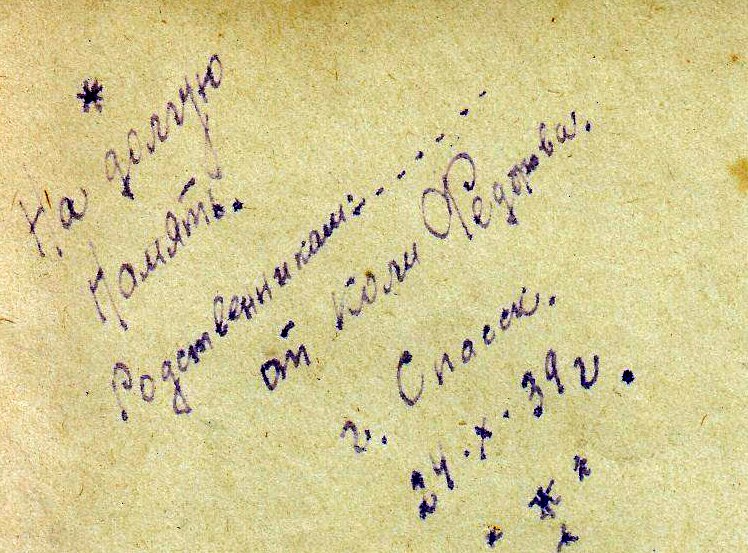 На долгую
память.
Родственникам: . . . . . . .
от Коли Федорова.
г. Спасск.
24.X.39 г.